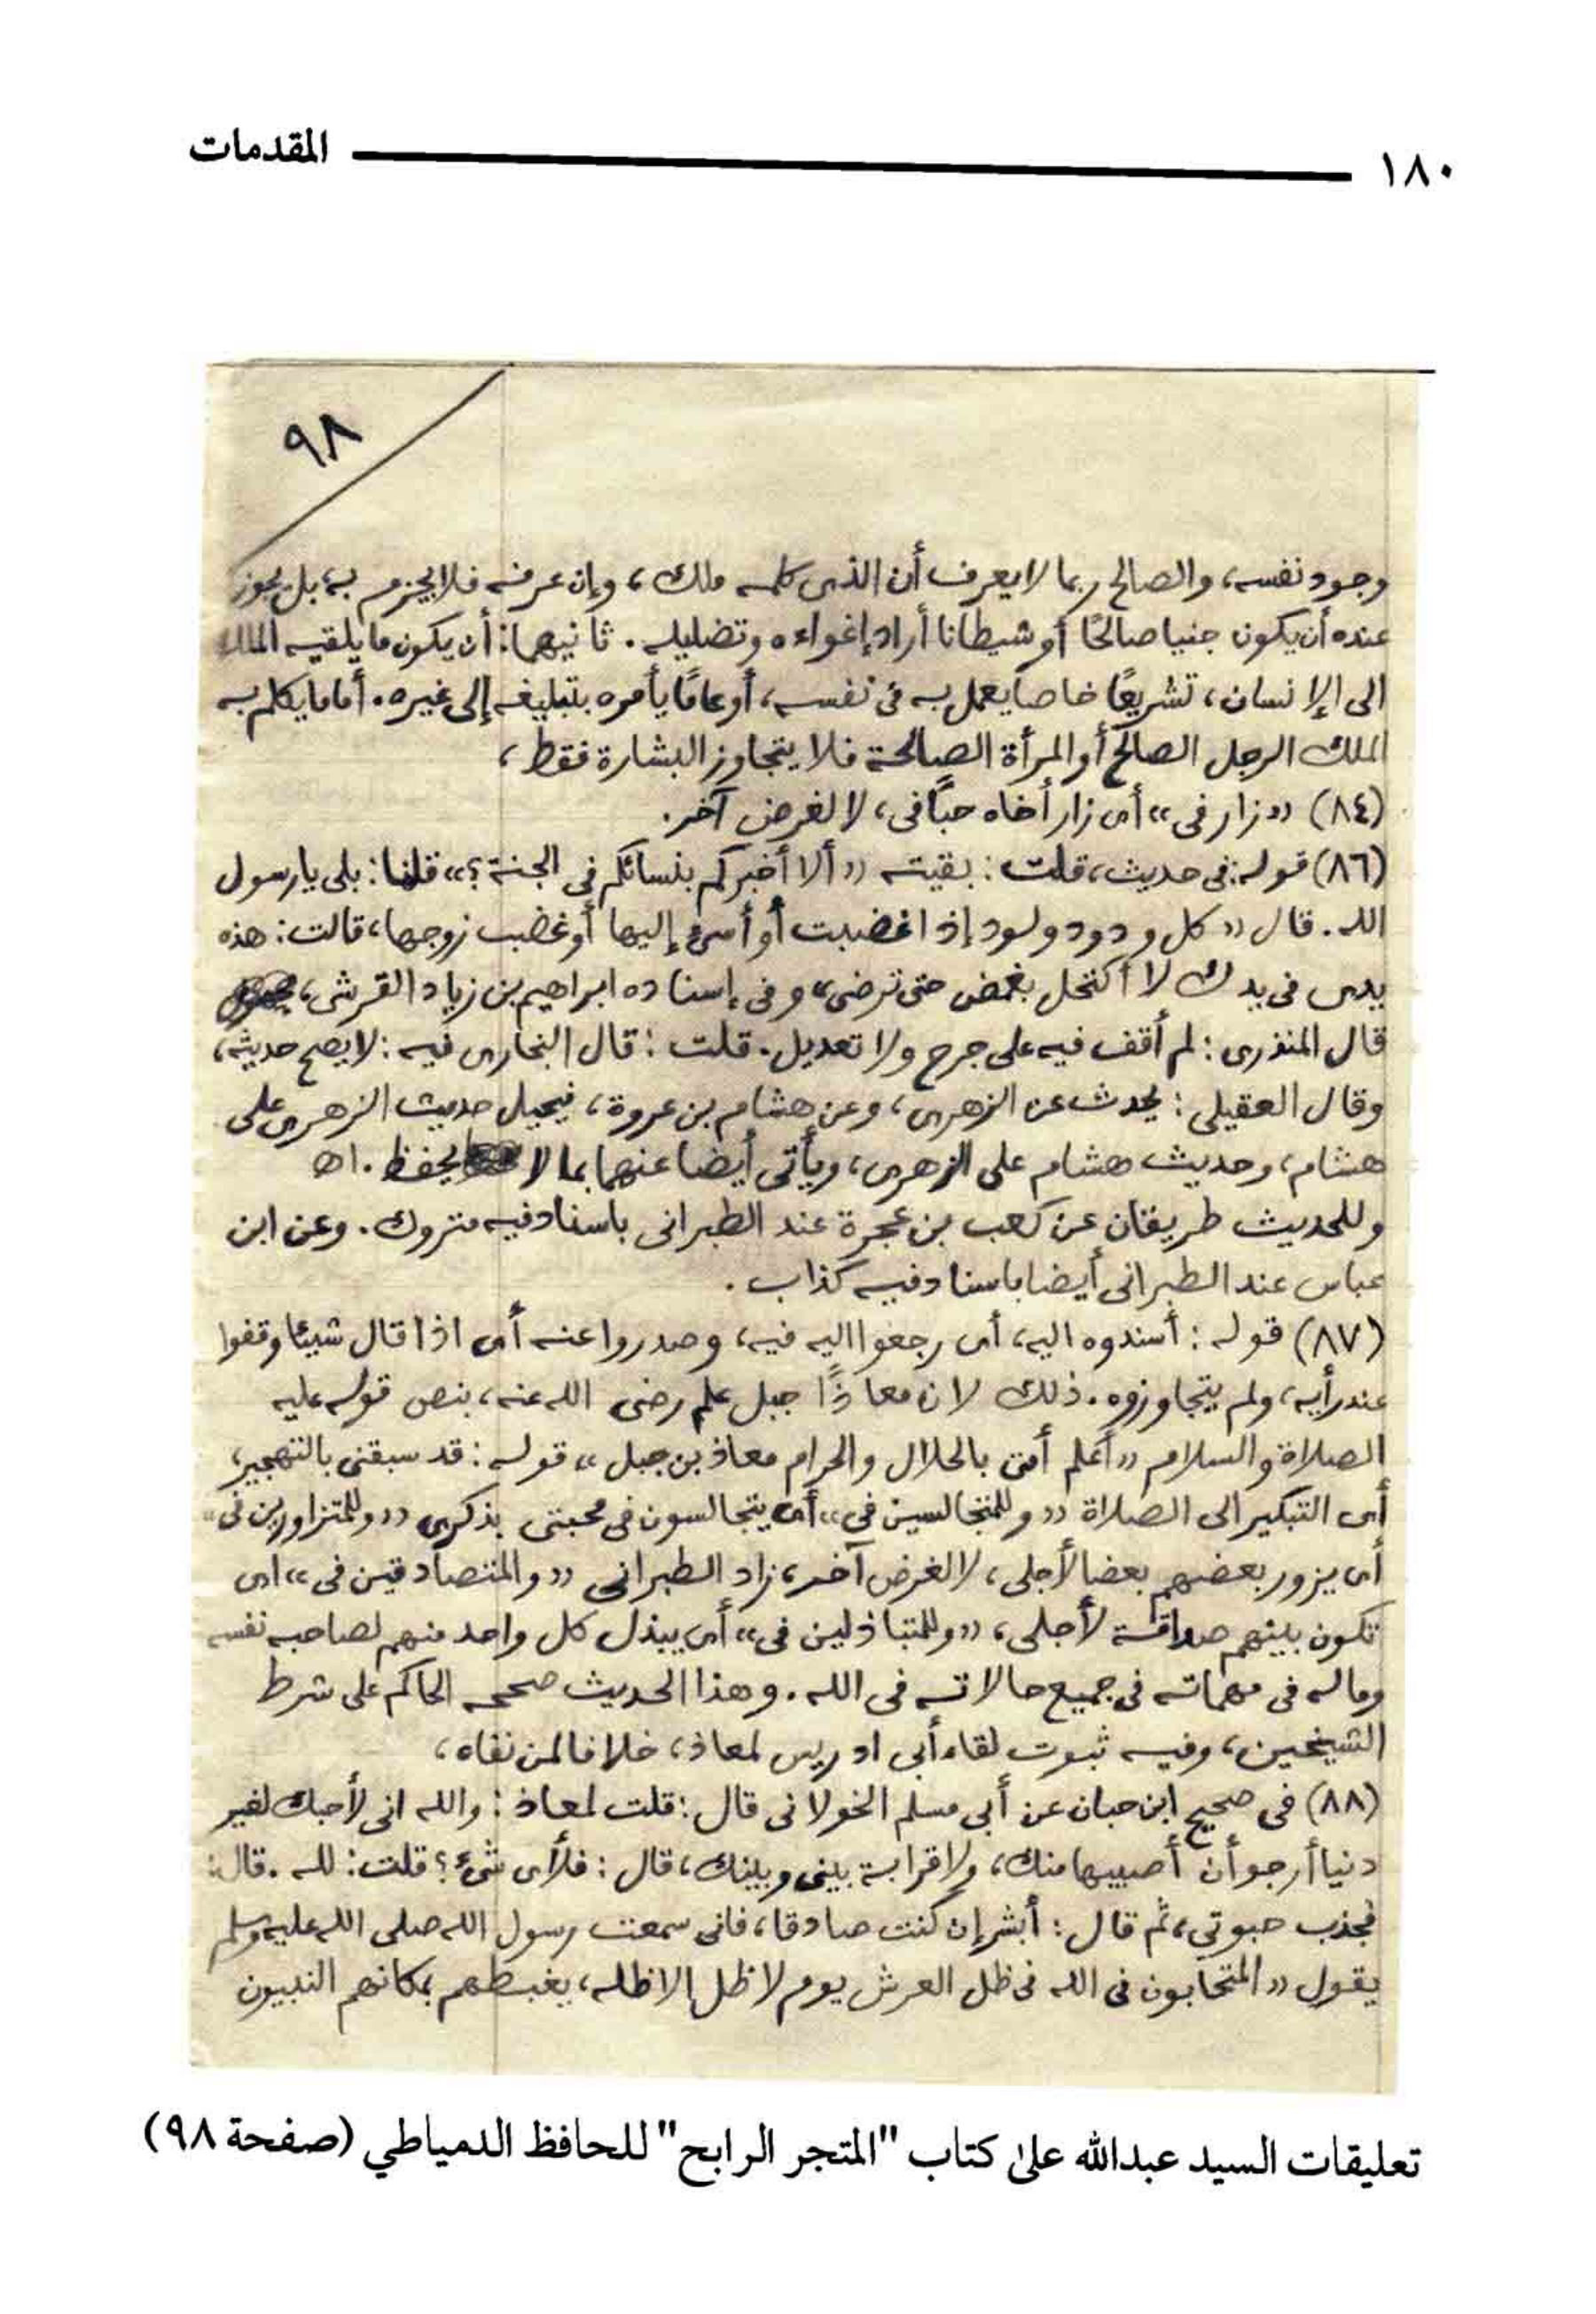 ١٨٠ المقدمات
٩٨
وجود نفسه، والصالح ربما لا يعرف أن الذى كلمه ملك، وإن عرفه فلا يجزم به، بل يجوز
عنده أن يكون جنيا صالحًا أو شيطانا أراد إغواءه وتضليله. ثانيهما: أن يكون ما يلقيه الملك
الى الإنسان، تشريعًا خاصا يعمل به فى نفسه، أو عامًا يأمره بتبليغه إلى غيره. أما ما يكلم به
الملك الرجل الصالح أو المرأة الصالحة فلا يتجاوز البشارة فقط،
(٨٤) «زار فى» أى زار أخاه حبًا فى، لا لغرض آخر.
(٨٦) قوله: فى حديث، قلت: بقيته «ألا أخبركم بنسائكم فى الجنة؟» قلنا: بلى يا رسول
الله. قال «كل ودود ولود إذا غضبت أو أسئ إليها أو غضب زوجها، قالت: هذه
يدى فى يدك لا أكتحل بغمض حتى ترضى» وفى إسناده ابراهيم بن زياد القرشى،
قال المنذرى: لم أقف فيه على جرح ولا تعديل. قلت: قال البخارى فيه: لا يصح حديثه،
وقال العقيلى: يحدث عن الزهرى، وعن هشام بن عروة، فيحيل حديث الزهرى على
هشام، وحديث هشام على الزهرى، ويأتى أيضا عنهما بما لا يحفظ. اه
وللحديث طريقان عن كعب بن عجرة عند الطبرانى باسناد فيه متروك. وعن ابن
عباس عند الطبرانى أيضا باسناد فيه كذاب.
(٨٧) قوله: أسندوه اليه، أى رجعوا اليه فيه، وصدروا عنه أى اذا قال شيئا وقفوا
عند رأيه، ولم يتجاوزوه. ذلك لان معاذًا جبل علم رضى الله عنه، بنص قوله عليه
الصلاة والسلام «أعلم أمتى بالحلال والحرام معاذ بن جبل» قوله: قد سبقنى بالتهجير،
أى التبكير الى الصلاة «وللمتجالسين في» أى يتجالسون فى محبتى بذكرى «وللمتزاورين فى»
أى يزور بعضهم بعضا لأجلى، لا لغرض آخر، زاد الطبرانى «والمتصادقين فى» اى
تكون بينهم صداقة لأجلى، «وللمتباذلين فى» أى يبذل كل واحد منهم لصاحبه نفسه
وماله فى مهماته فى جميع حالاته فى الله. وهذا الحديث صححه الحاكم على شرط
الشيخين، وفيه ثبوت لقاء أبى ادريس لمعاذ، خلافا لمن نفاه،
(٨٨) فى صحيح ابن حبان عن أبى مسلم الخولانى قال: قلت لمعاذ: والله انى لأحبك لغير
دنيا أرجو أن أصيبها منك، ولا قرابة بينى وبينك، قال: فلأى شئ؟ قلت: لله. قال:
فجذب حبوتي، ثم قال: أبشر إن كنت صادقا، فانى سمعت رسول الله صلى الله عليه وسلم
يقول «المتحابون فى الله فى ظل العرش يوم لا ظل إلا ظله، يغبطهم بمكانهم النبيون
تعليقات السيد عبدالله على كتاب "المتجر الرابح" للحافظ الدمياطي (صفحة ٩٨)